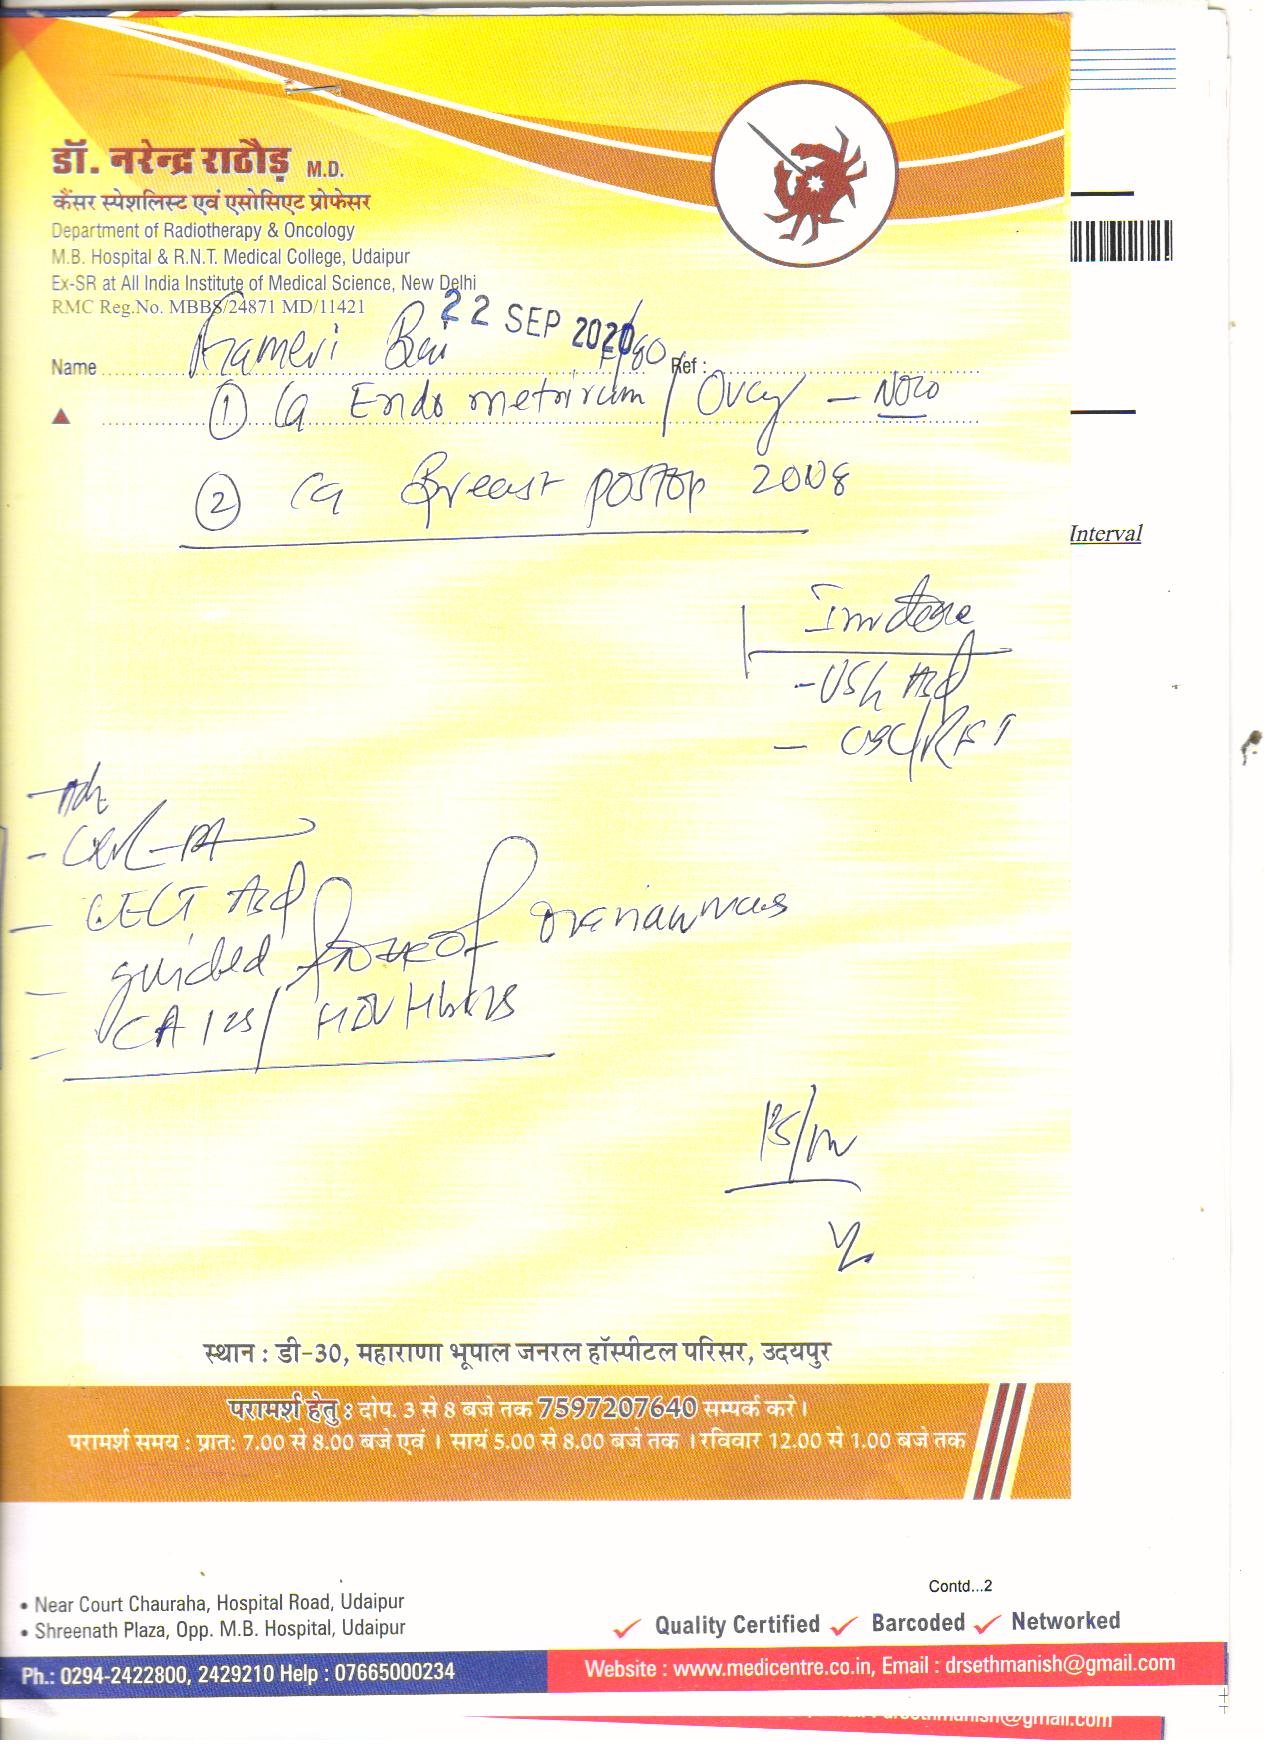 डॉ. नरेन्द्र राठौड़ M.D.
कैंसर स्पेशलिस्ट एवं एसोसिएट प्रोफेसर
Department of Radiotherapy & Oncology
M.B. Hospital & R.N.T. Medical College, Udaipur
Ex-SR at All India Institute of Medical Science, New Delhi
RMC Reg.No. MBBS/24871 MD/11421
22 SEP 2020
Name Kameri Bai F/60 Ref :
① Ca Endometrium / Ovary –
② Ca Breast postop 2008
Interval
- USG Abd
- CBC/RFT
Adv
- CECT Abd
- guided
- CA 125/
स्थान : डी-30, महाराणा भूपाल जनरल हॉस्पीटल परिसर, उदयपुर
परामर्श हेतु : दोप. 3 से 8 बजे तक 7597207640 सम्पर्क करे।
परामर्श समय : प्रात: 7.00 से 8.00 बजे एवं । सायं 5.00 से 8.00 बजे तक । रविवार 12.00 से 1.00 बजे तक
Contd...2
• Near Court Chauraha, Hospital Road, Udaipur
• Shreenath Plaza, Opp. M.B. Hospital, Udaipur
✓ Quality Certified ✓ Barcoded ✓ Networked
Ph.: 0294-2422800, 2429210 Help : 07665000234
Website : www.medicentre.co.in, Email : drsethmanish@gmail.com
drsethmanish@gmail.com